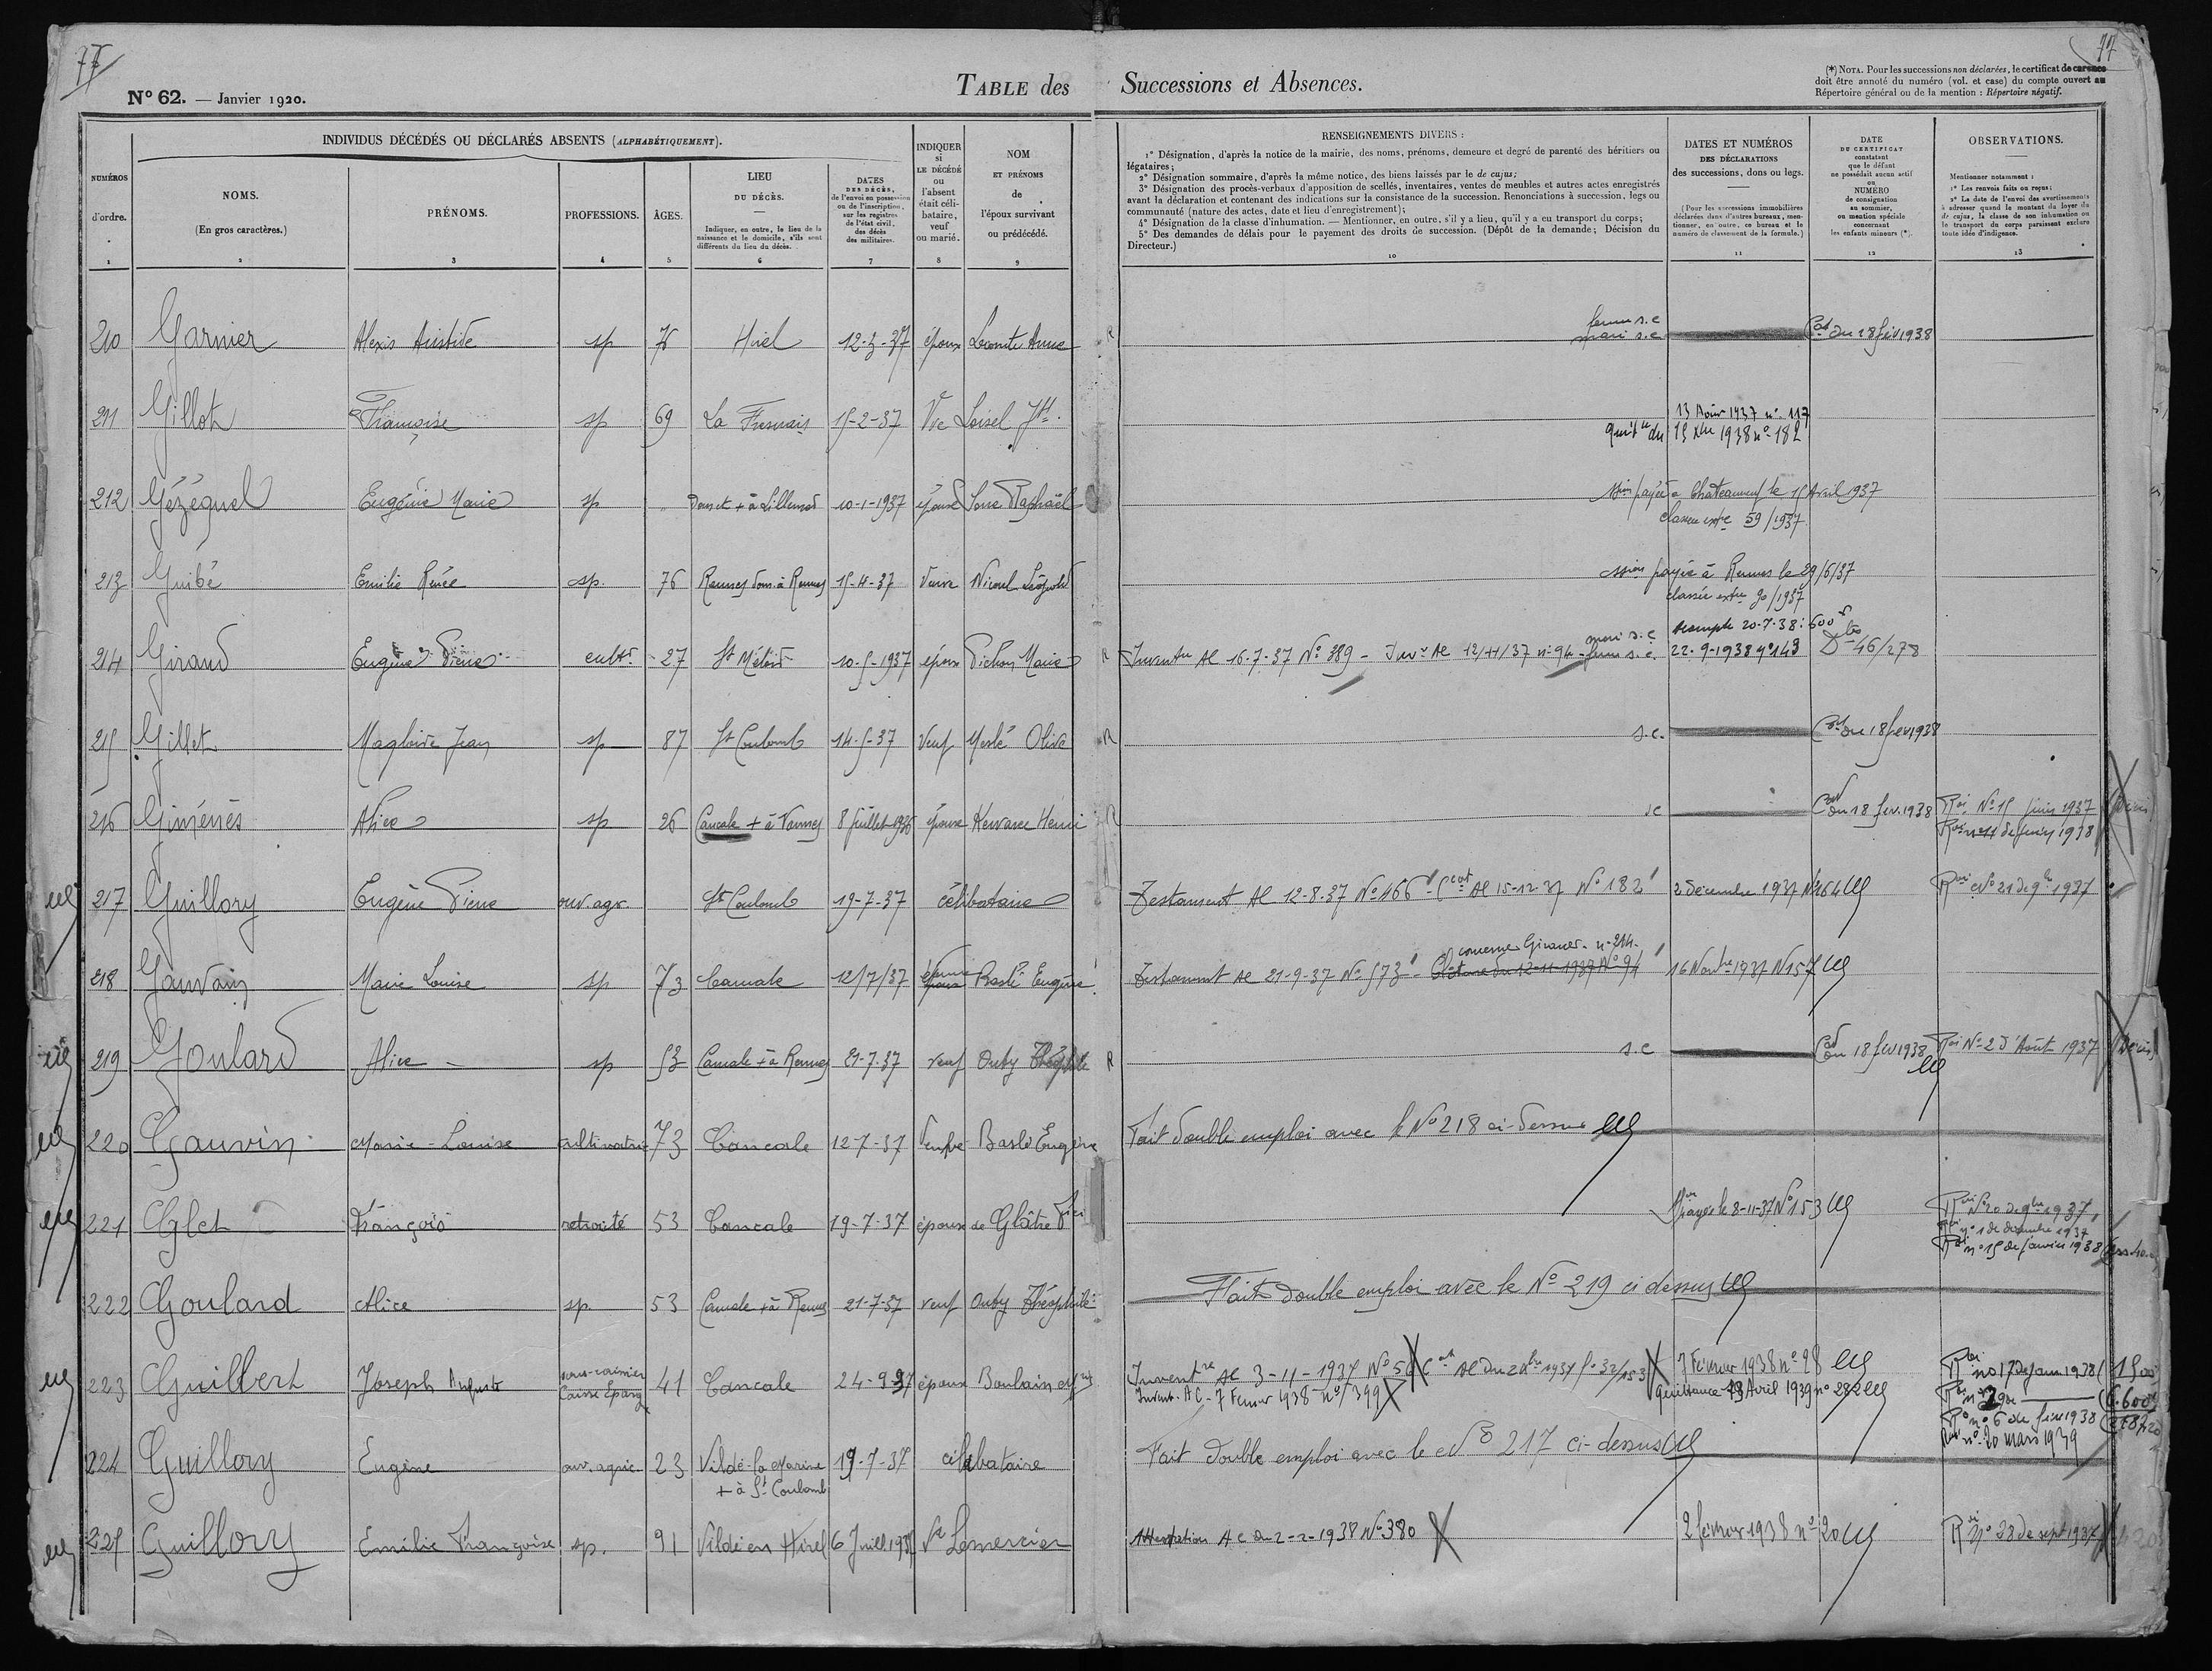 77
77
N° 62. — Janvier 1920.
TABLE des Successions et Absences.
(*) NOTA. Pour les successions non déclarées, le certificat de carence
doit être annoté du numéro (vol. et case) du compte ouvert au
Répertoire général ou de la mention : Répertoire négatif.
NUMÉROS
d'ordre.
1
INDIVIDUS DÉCÉDÉS OU DÉCLARÉS ABSENTS (ALPHABÉTIQUEMENT).
NOMS.
(En gros caractères.)
2
PRÉNOMS.
3
PROFESSIONS.
4
ÂGES.
5
LIEU
DU DÉCÈS.
Indiquer, en outre, le lieu de la
naissance et le domicile, s'ils sont
différents du lieu du décès.
6
DATES
DES DÉCÈS,
de l'envoi en possession
ou de l'inscription,
sur les registres
de l'état civil,
des décès
des militaires.
7
INDIQUER
si
LE DÉCÉDÉ
ou
l'absent
était céli-
bataire,
veuf
ou marié.
8
NOM
ET PRÉNOMS
de
l'époux survivant
ou prédécédé.
9
RENSEIGNEMENTS DIVERS :
1° Désignation, d'après la notice de la mairie, des noms, prénoms, demeure et degré de parenté des héritiers ou
légataires;
2° Désignation sommaire, d'après la même notice, des biens laissés par le de cujus;
3° Désignation des procès-verbaux d'apposition de scellés, inventaires, ventes de meubles et autres actes enregistrés
avant la déclaration et contenant des indications sur la consistance de la succession. Renonciations à succession, legs ou
communauté (nature des actes, date et lieu d'enregistrement);
4° Désignation de la classe d'inhumation. — Mentionner, en outre, s'il y a lieu, qu'il y a eu transport du corps;
5° Des demandes de délais pour le payement des droits de succession. (Dépôt de la demande; Décision du
Directeur.)
10
DATES ET NUMÉROS
DES DÉCLARATIONS
des successions, dons ou legs.
(Pour les successions immobilières
déclarées dans d'autres bureaux, men-
tionner, en outre, ce bureau et le
numéro de classement de la formule.)
11
DATE
DU CERTIFICAT
constatant
que le défunt
ne possédait aucun actif
ou
NUMÉRO
de consignation
au sommier,
ou mention spéciale
concernant
les enfants mineurs (*).
12
OBSERVATIONS.
Mentionner notamment :
1° Les renvois faits ou reçus;
2° La date de l'envoi des avertissements
à adresser quand le montant du loyer du
de cujus, la classe de son inhumation ou
le transport du corps paraissent exclure
toute idée d'indigence.
13
femme s.c
210 Garnier Alexis Aristide sp 76 Hirel 12-3-37 époux Lecomte Anne R mari s.c. Cat du 18 fév 1938
13 Août 1937 n° 117
211 Gillot Françoise sp 69 La Fresnais 15-2-37 Vve Loisel Jh. Quitce du 15 Xbre 1938 n° 182
212 Gézéquel Eugénie Marie sp Dom et + à Lillemer 10-1-1937 épouse Raphaël ssion payée à Chateauneuf le 15 Avril 1937
classée extre 59/1937
213 Guibé Emilie Renée sp. 76 Rennes dom. à Rennes 15-4-37 Veuve Nicoul Léopold ssion payée à Rennes le 29/6/37
classée extre 90/1937
mari s.c Acompte 20-7-38 : 600 f
214 Giraud Eugène Pierre cultr 27 St Méloir 10-5-1937 époux Pichon Marie R Inventre Ac 16-7-37 N° 389 - Invre Ac 12/11/37 n° 94 - femme s.c. 22-9-1938 n° 143 Dtes 46/278
215 Gillet Magloire Jean sp 87 St Coulomb 14-5-37 Veuf Meslé Olive R s.c. Cat du 18 fév 1938
216 Giménès Alice sp 26 Cancale + à Vannes 8 juillet 1936 épouse Kervarec Henri R sc Cat du 18 fév. 1938 Roi N° 15 juin 1937
217 Guillory Eugène Pierre ouv. agr. St Coulomb 19-7-37 célibataire Testament Ac 12-8-37 N° 466 - Ccat Ac 15-12-37 N° 182 2 Décembre 1937 N° 164 Roi N° 21 de 9bre 1937
concerne Giraud n° 214.
218 Gauvain Marie Louise sp 73 Cancale 12/7/37 épouse Baslé Eugène Testament Ac 21-9-37 N° 573 - Clôture du 12-11-1937 N° 94 16 Novbre 1937 N 157
219 Goulard Alice sp 53 Cancale + à Rennes 21-7-37 veuf Outy Théophile R s.c Cat du 18 fév 1938 Roi N° 2 d'Août 1937
220 Gauvin Marie-Louise cultivatrice 73 Cancale 12-7-37 Veuve Baslé Eugène Fait double emploi avec le N° 218 ci-dessus
221 Glet François retraité 53 Cancale 19-7-37 époux de Glâtre Payée le 8-11-37 N° 153 Roi N° 20 de 9bre 1937
Roi n° 1 de décembre 1937
Roi n° 15 de janvier 1938
222 Goulard Alice sp. 53 Cancale + à Rennes 21-7-37 veuf Outy Théophile Fait double emploi avec le N° 219 ci dessus
223 Guilbert Joseph Auguste sous-caissier Caisse Epargne 41 Cancale 24-9-37 époux Boulain Inventre Ac 3-11-1937 N° 56 7 Février 1938 n° 28 Roi no 17 de janv 1938 1500
Invent. AC - 7 Février 1938 - n° 399 Quittance 13 Avril 1939 n° 282 6.600
Roi n° 6 de févr 1938
Roi n° 20 mars 1939
224 Guillory Eugène ouv. agric. 23 Vildé-la Marine 19-7-37 célibataire Fait double emploi avec le N° 217 ci-dessus
+ à St Coulomb
225 Guillory Emilie Françoise sp. 91 Vildé en Hirel 6 Juill. 1937 Ve Lemercier Attestation Ac du 2-2-1938 N° 380 2 février 1938 n° 20 Roi N° 28 de sept 1937